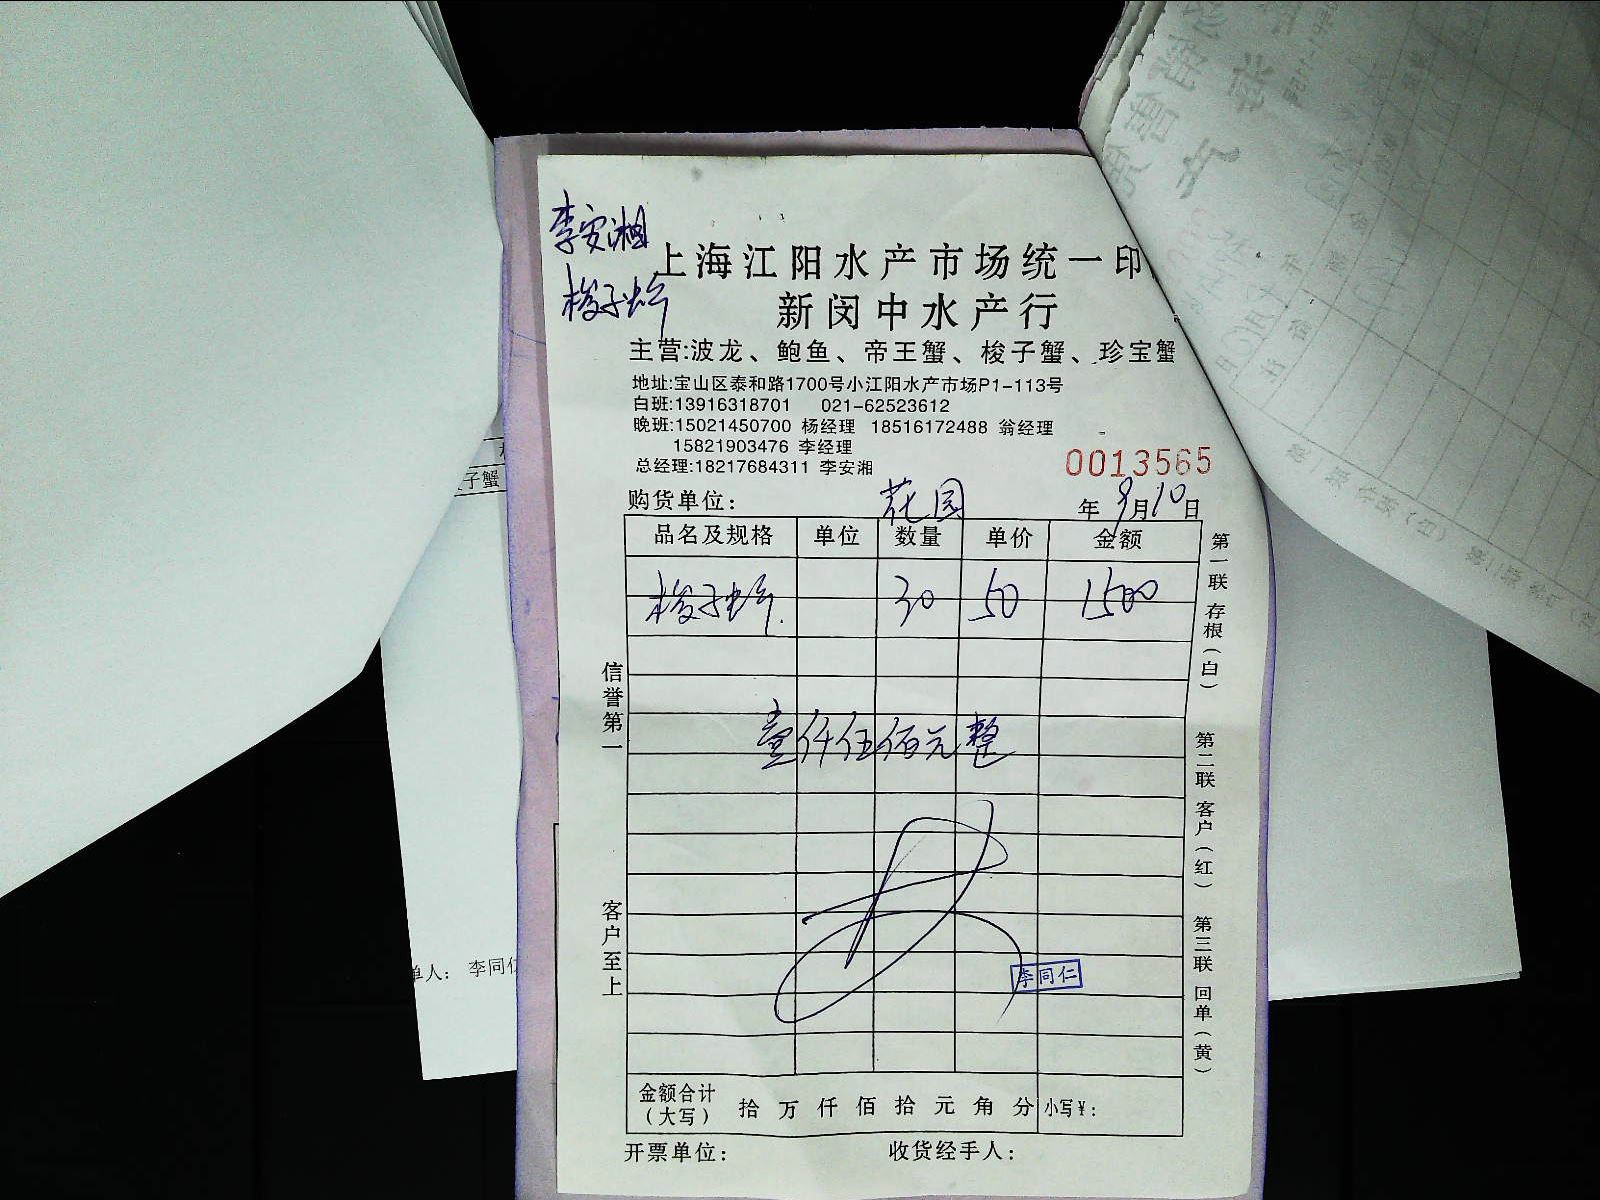 李安湘
梭子蟹
上海江阳水产市场统一印
新闵中水产行
主营:波龙、鲍鱼、帝王蟹、梭子蟹、珍宝蟹
地址:宝山区泰和路1700号小江阳水产市场P1-113号
白班:13916318701 021-62523612
晚班:15021450700 杨经理 18516172488 翁经理
15821903476 李经理
总经理:18217684311 李安湘
0013565
购货单位: 花园 年 9月10日
品名及规格 单位 数量 单价 金额
梭子蟹 30 50 1500
壹仟伍佰元整
李同仁
金额合计(大写) 拾 万 仟 佰 拾 元 角 分 小写¥:
开票单位: 收货经手人:
信誉第一
客户至上
第一联 存根(白)
第二联 客户(红)
第三联 回单(黄)
子蟹
单人: 李同仁